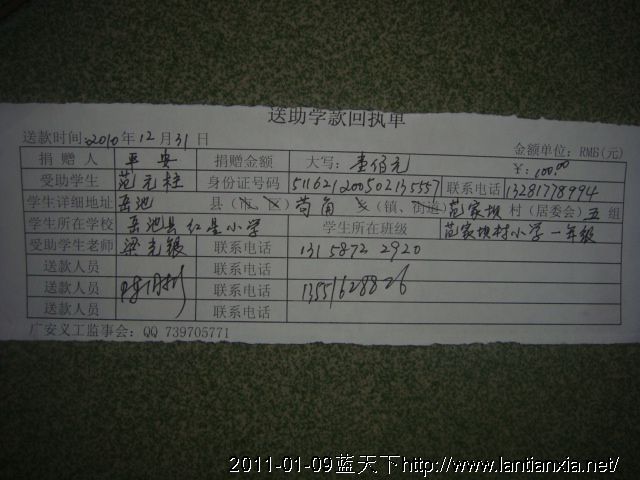 送助学款回执单
送款时间:2010年12月31日 金额单位: RMB(元)
捐赠人 平安 捐赠金额 大写: 壹佰元 ¥: 100.00
受助学生 范元柱 身份证号码 511621200502135557 联系电话 13281778994
学生详细地址 岳池 县(市、区) 苟角 乡(镇、街道) 范家坝 村(居委会) 五 组
学生所在学校 岳池县红星小学 学生所在班级 范家坝村小学一年级
受助学生老师 梁光银 联系电话 13158722920
送款人员 联系电话
送款人员 联系电话 13551628826
送款人员 联系电话
广安义工监事会: QQ 739705771
2011-01-09蓝天下http://www.lantianxia.net/